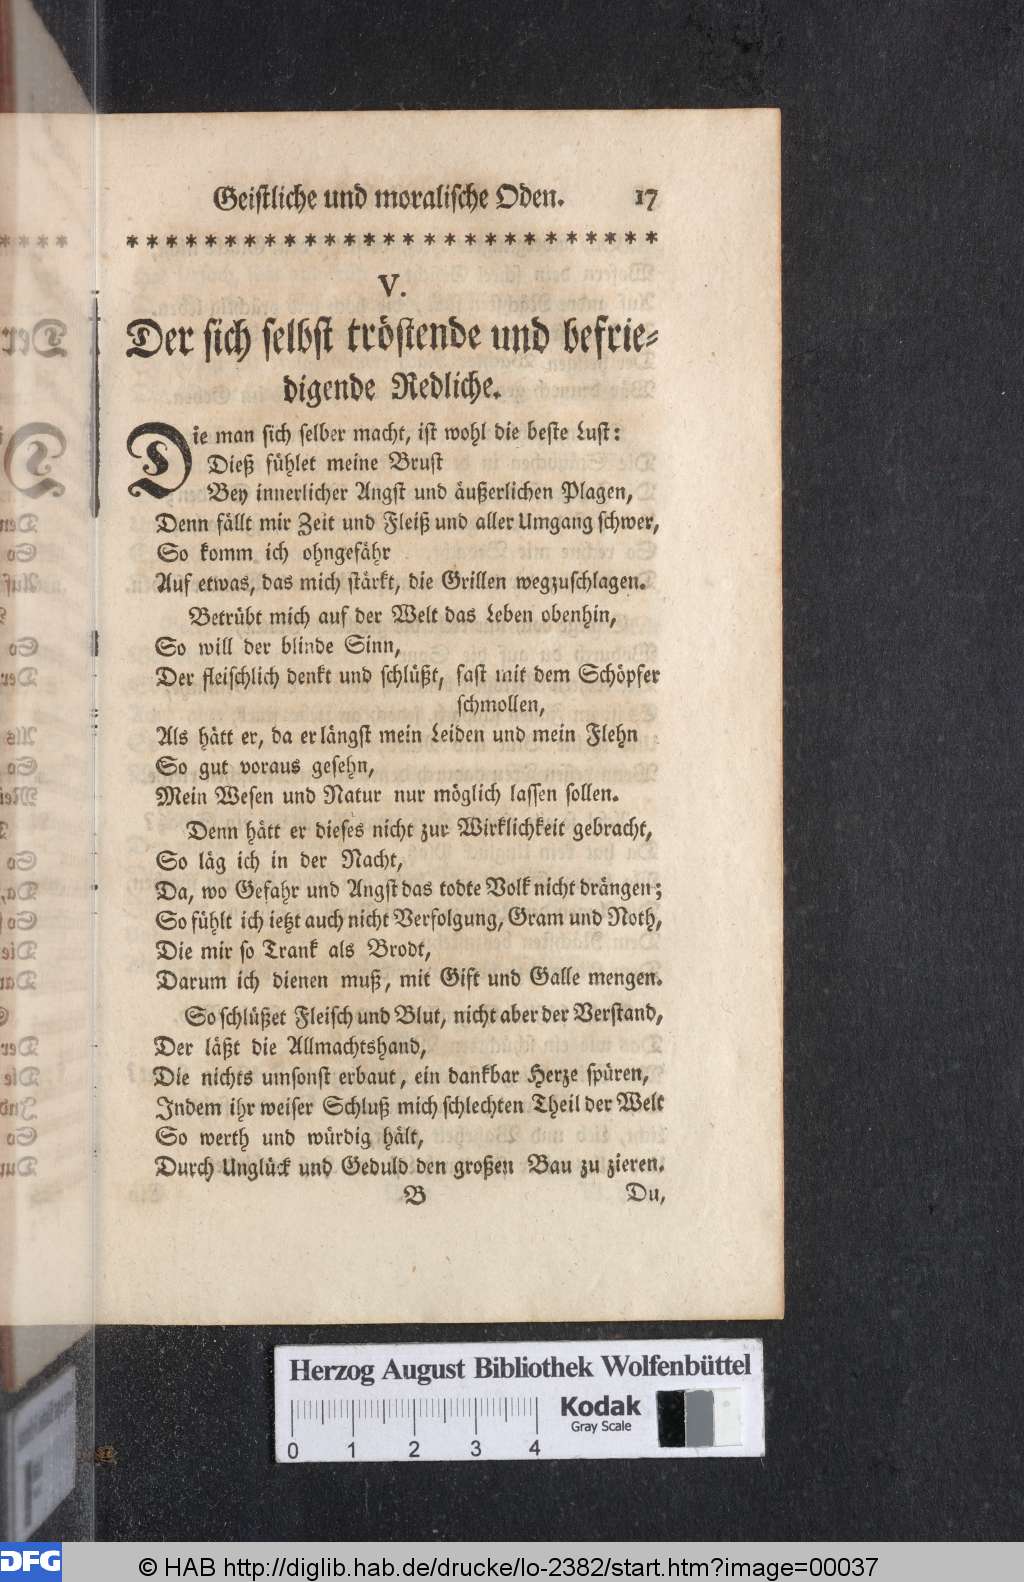 Geistliche und moralische Oden. 17
* * * * * * * * * * * * * * * * * * * * * * * * * * *
V.
Der sich selbst tröstende und befrie-
digende Redliche.
Die man sich selber macht, ist wohl die beste Lust:
Dieß fühlet meine Brust
Bey innerlicher Angst und äußerlichen Plagen,
Denn fällt mir Zeit und Fleiß und aller Umgang schwer,
So komm ich ohngefähr
Auf etwas, das mich stärkt, die Grillen wegzuschlagen.
Betrübt mich auf der Welt das Leben obenhin,
So will der blinde Sinn,
Der fleischlich denkt und schlüßt, fast mit dem Schöpfer
schmollen,
Als hätt er, da er längst mein Leiden und mein Flehn
So gut voraus gesehn,
Mein Wesen und Natur nur möglich lassen sollen.
Denn hätt er dieses nicht zur Wirklichkeit gebracht,
So läg ich in der Nacht,
Da, wo Gefahr und Angst das todte Volk nicht drängen;
So fühlt ich ietzt auch nicht Verfolgung, Gram und Noth,
Die mir so Trank als Brodt,
Darum ich dienen muß, mit Gift und Galle mengen.
So schlüßet Fleisch und Blut, nicht aber der Verstand,
Der läßt die Allmachtshand,
Die nichts umsonst erbaut, ein dankbar Herze spüren,
Indem ihr weiser Schluß mich schlechten Theil der Welt
So werth und würdig hält,
Durch Unglück und Geduld den großen Bau zu zieren.
B Du,
Herzog August Bibliothek Wolfenbüttel
Kodak
Gray Scale
0 1 2 3 4
DFG
© HAB http://diglib.hab.de/drucke/lo-2382/start.htm?image=00037